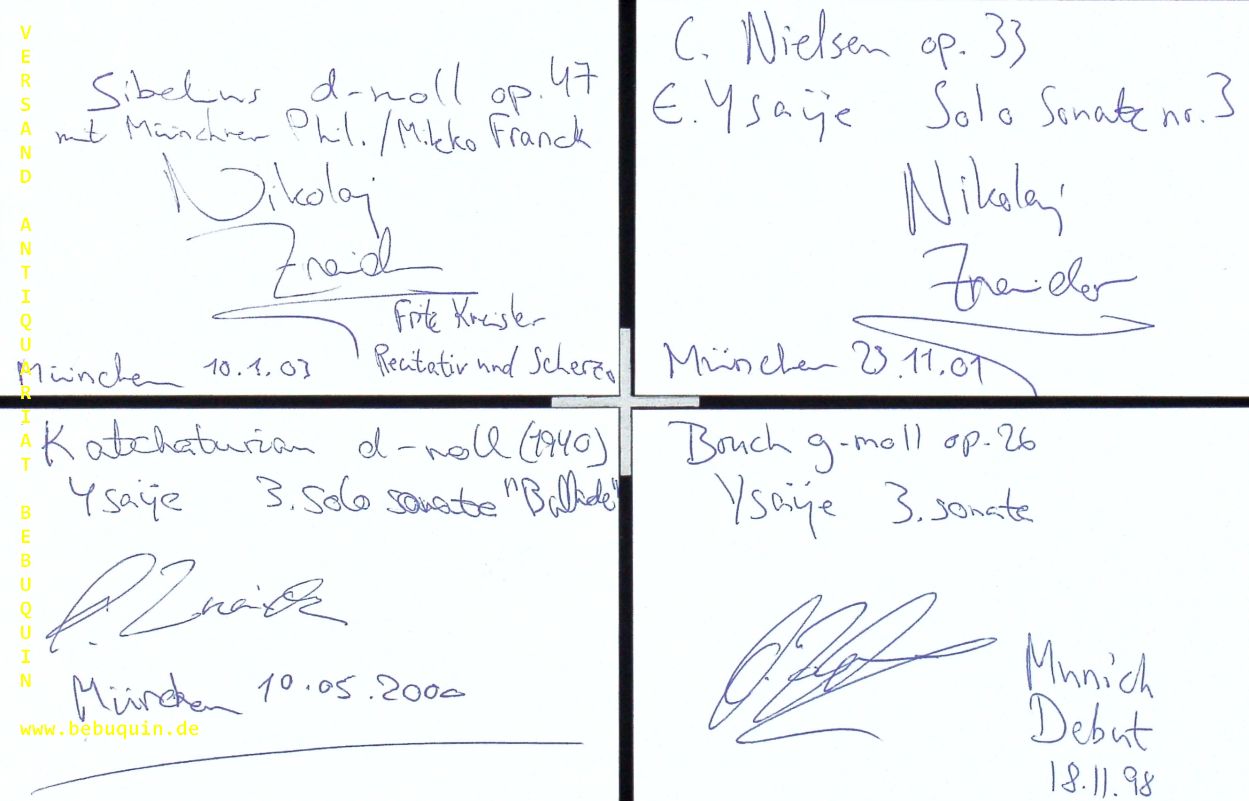 Sibelius d-moll op. 47
mit Münchner Phil./Mikko Franck
Nikolaj
Znaider
Fritz Kreisler
Recitativ und Scherzo
München 10.1.03
C. Nielsen op. 33
E. Ysaÿe Solo Sonate nr. 3
Nikolaj
Znaider
München 23.11.01
Katchaturian d-moll (1940)
Ysaÿe 3. Solo sonate "Ballade"
Znaider
München 10.05.2000
Bruch g-moll op. 26
Ysaÿe 3. sonate
Munich
Debut
18.11.98
VERSAND ANTIQUARIAT BEBUQUIN
www.bebuquin.de